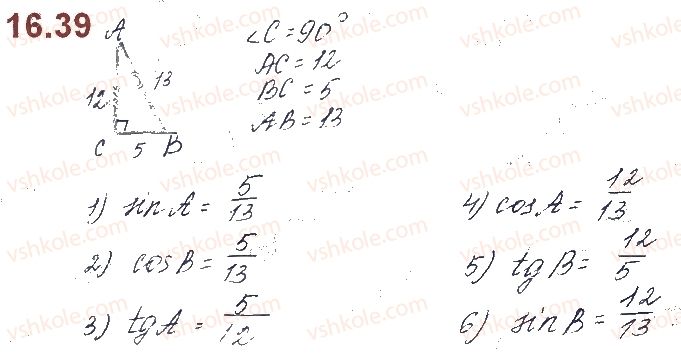 16.39
A
12
13
C 5 B
∠C = 90°
AC = 12
BC = 5
AB = 13
1) sin A = 5/13
2) cos B = 5/13
3) tg A = 5/12
4) cos A = 12/13
5) tg B = 12/5
6) sin B = 12/13
vshkole.com